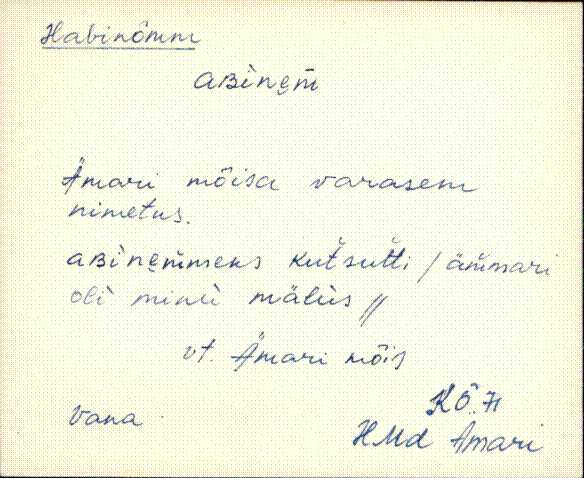 Habinõmm
aʙìnẹm̄
Ämari mõisa varasem
nimetus.
aʙìnẹm̄meks kut̆sut̆ti / äm̄mari
oli minu mälus //
vt. Ämari mõis
KÕ. 71
Vana
HMd Ämari